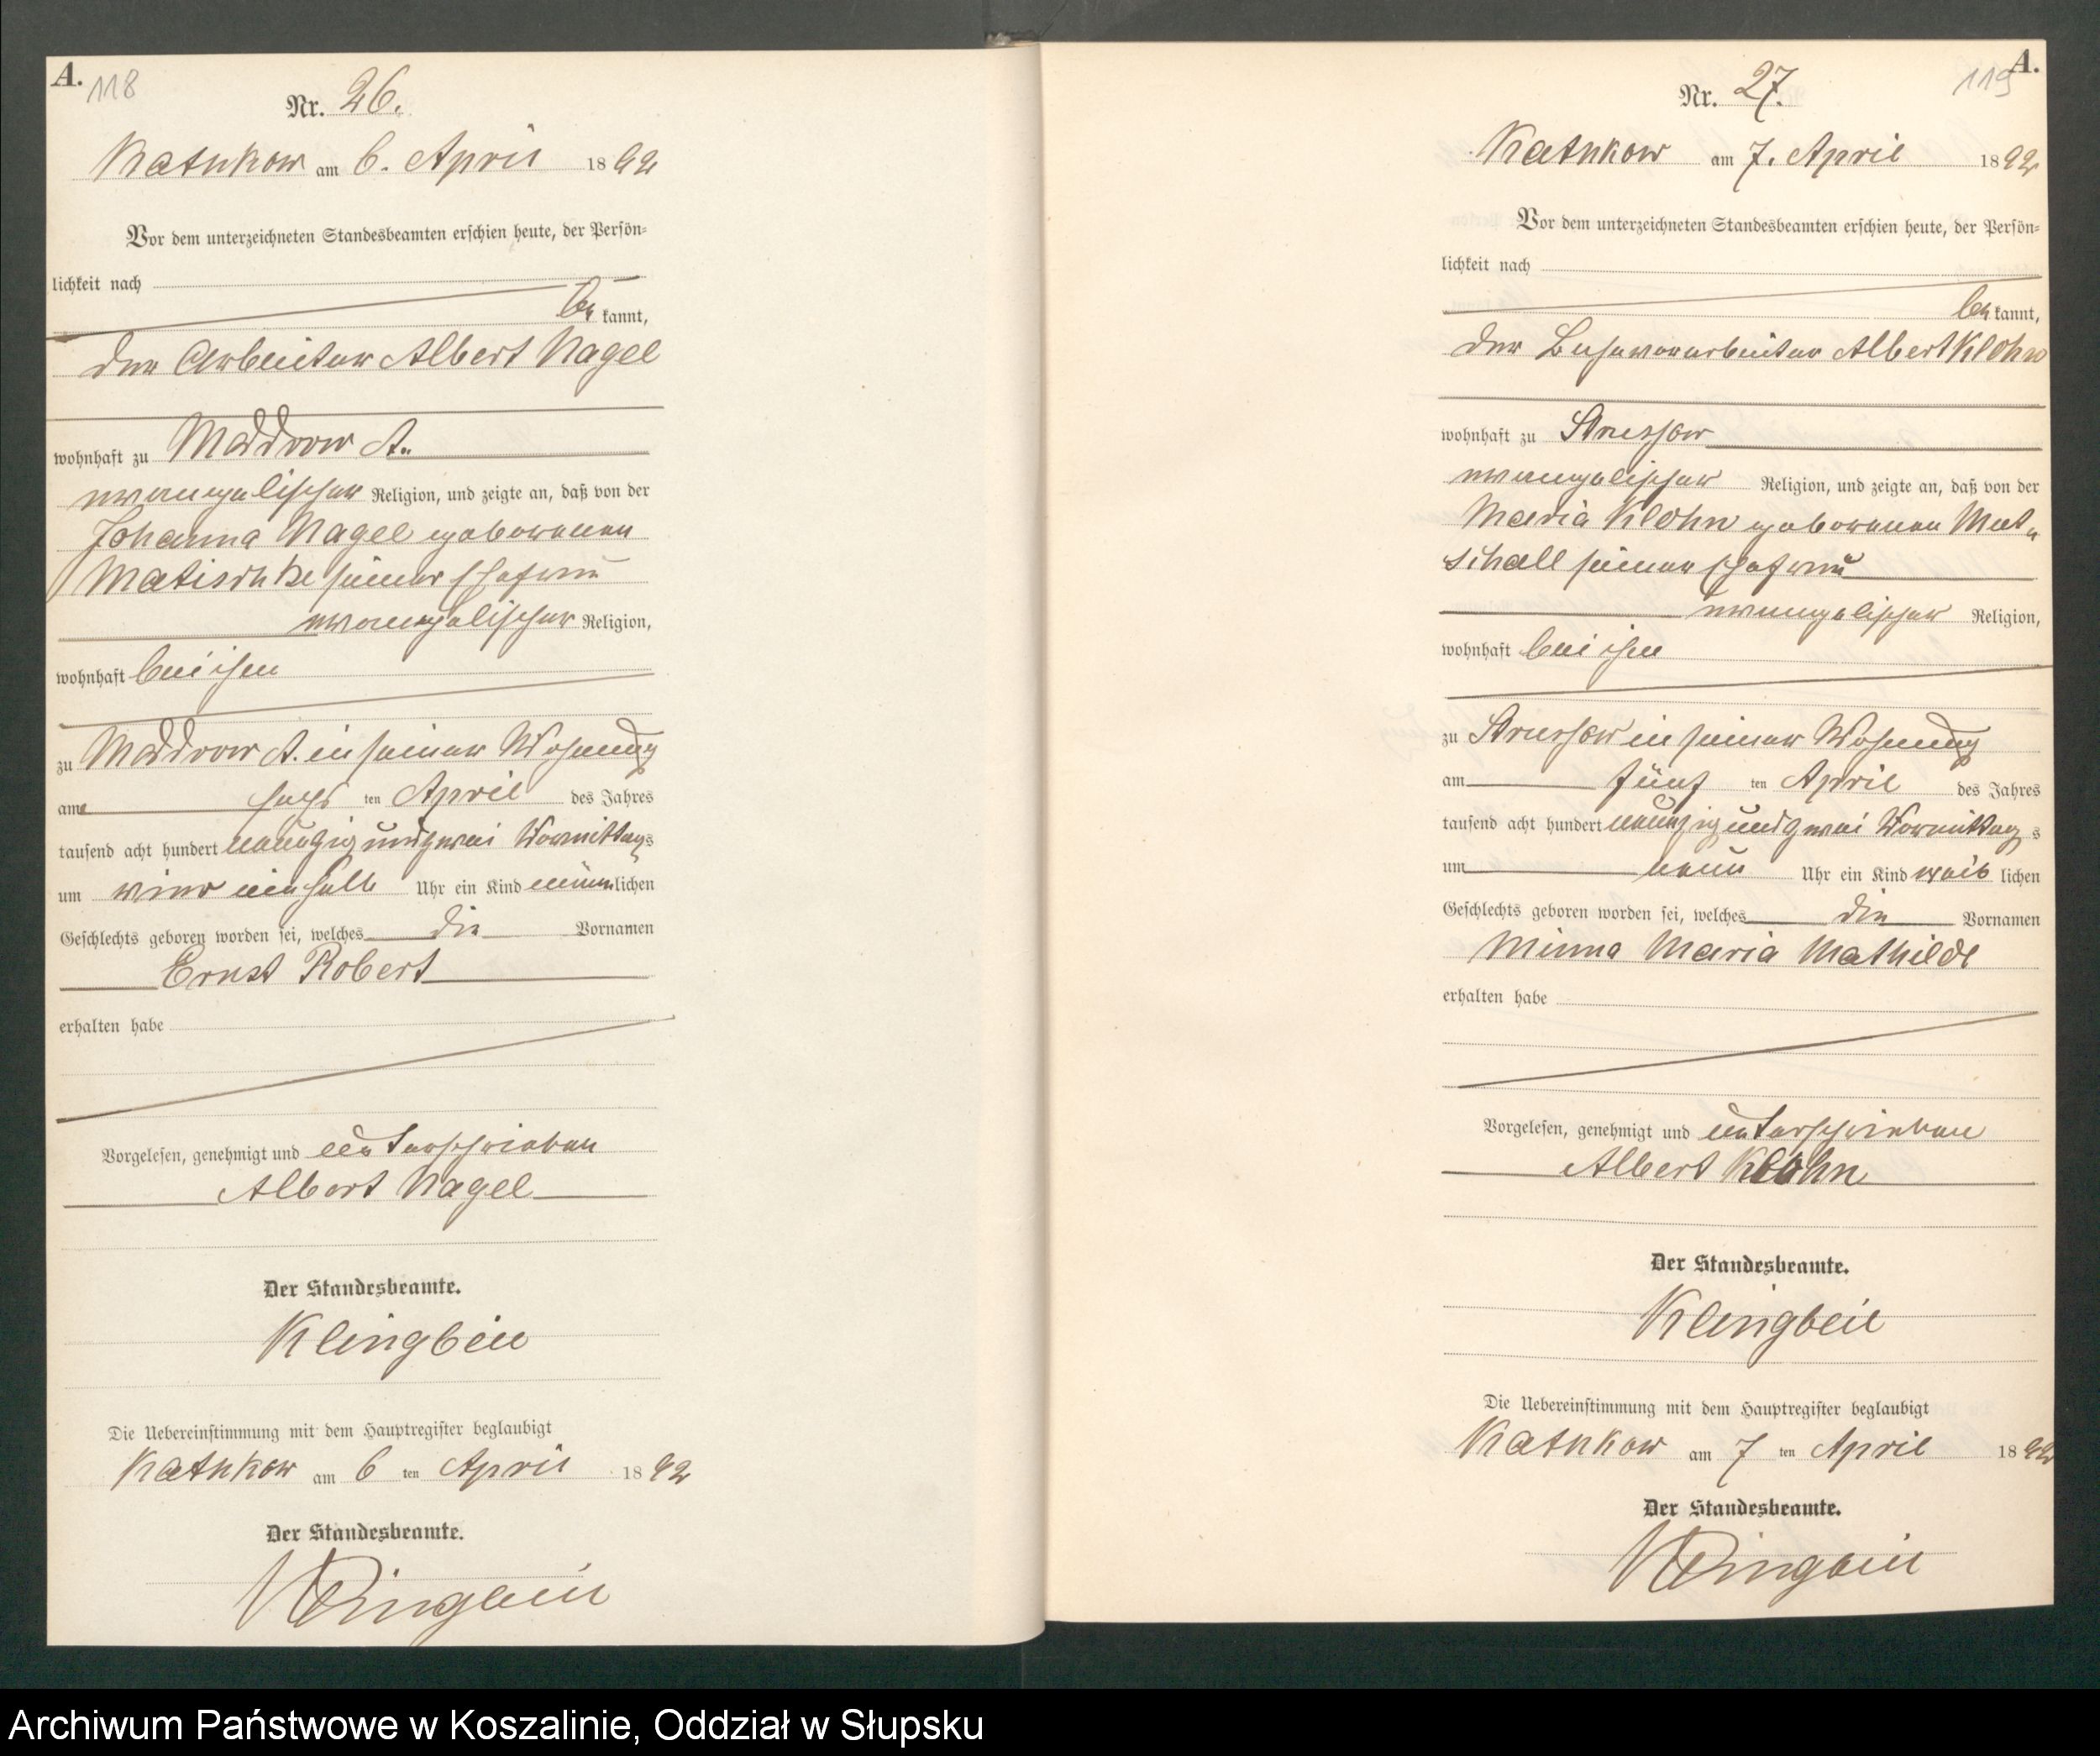 A.
118
Nr. 26.
Ratnkow am 6. April 1892
Vor dem unterzeichneten Standesbeamten erschien heute, der Persön-
lichkeit nach
be kannt,
der Arbeiter Albert Nagel
wohnhaft zu Maddrow A.
evangelischer Religion, und zeigte an, daß von der
Johanna Nagel geborenen
Matischke seiner Ehefrau
evangelischer Religion,
wohnhaft bei ihm
zu Maddrow A. in seiner Wohnung
am sechs ten April des Jahres
tausend acht hundert neunzig und zwei Vormittags
um vier einhalb Uhr ein Kind männlichen
Geschlechts geboren worden sei, welches die Vornamen
Ernst Robert
erhalten habe
Vorgelesen, genehmigt und unterschrieben
Albert Nagel
Der Standesbeamte.
Klingbeil
Die Uebereinstimmung mit dem Hauptregister beglaubigt
Ratnkow am 6 ten April 1892
Der Standesbeamte.
Klingbeil
A.
119
Nr. 27.
Ratnkow am 7. April 1892
Vor dem unterzeichneten Standesbeamten erschien heute, der Persön-
lichkeit nach
be kannt,
der Albert Klohn
wohnhaft zu Strussow
evangelischer Religion, und zeigte an, daß von der
Maria Klohn geborenen Mut-
schall seiner Ehefrau
evangelischer Religion,
wohnhaft bei ihm
zu Strussow in seiner Wohnung
am fünf ten April des Jahres
tausend acht hundert neunzig und zwei Vormittag s
um neun Uhr ein Kind weib lichen
Geschlechts geboren worden sei, welches die Vornamen
Minna Maria Mathilde
erhalten habe
Vorgelesen, genehmigt und unterschrieben
Albert Klohn
Der Standesbeamte.
Klingbeil
Die Uebereinstimmung mit dem Hauptregister beglaubigt
Ratnkow am 7 ten April 1892
Der Standesbeamte.
Klingbeil
Archiwum Państwowe w Koszalinie, Oddział w Słupsku